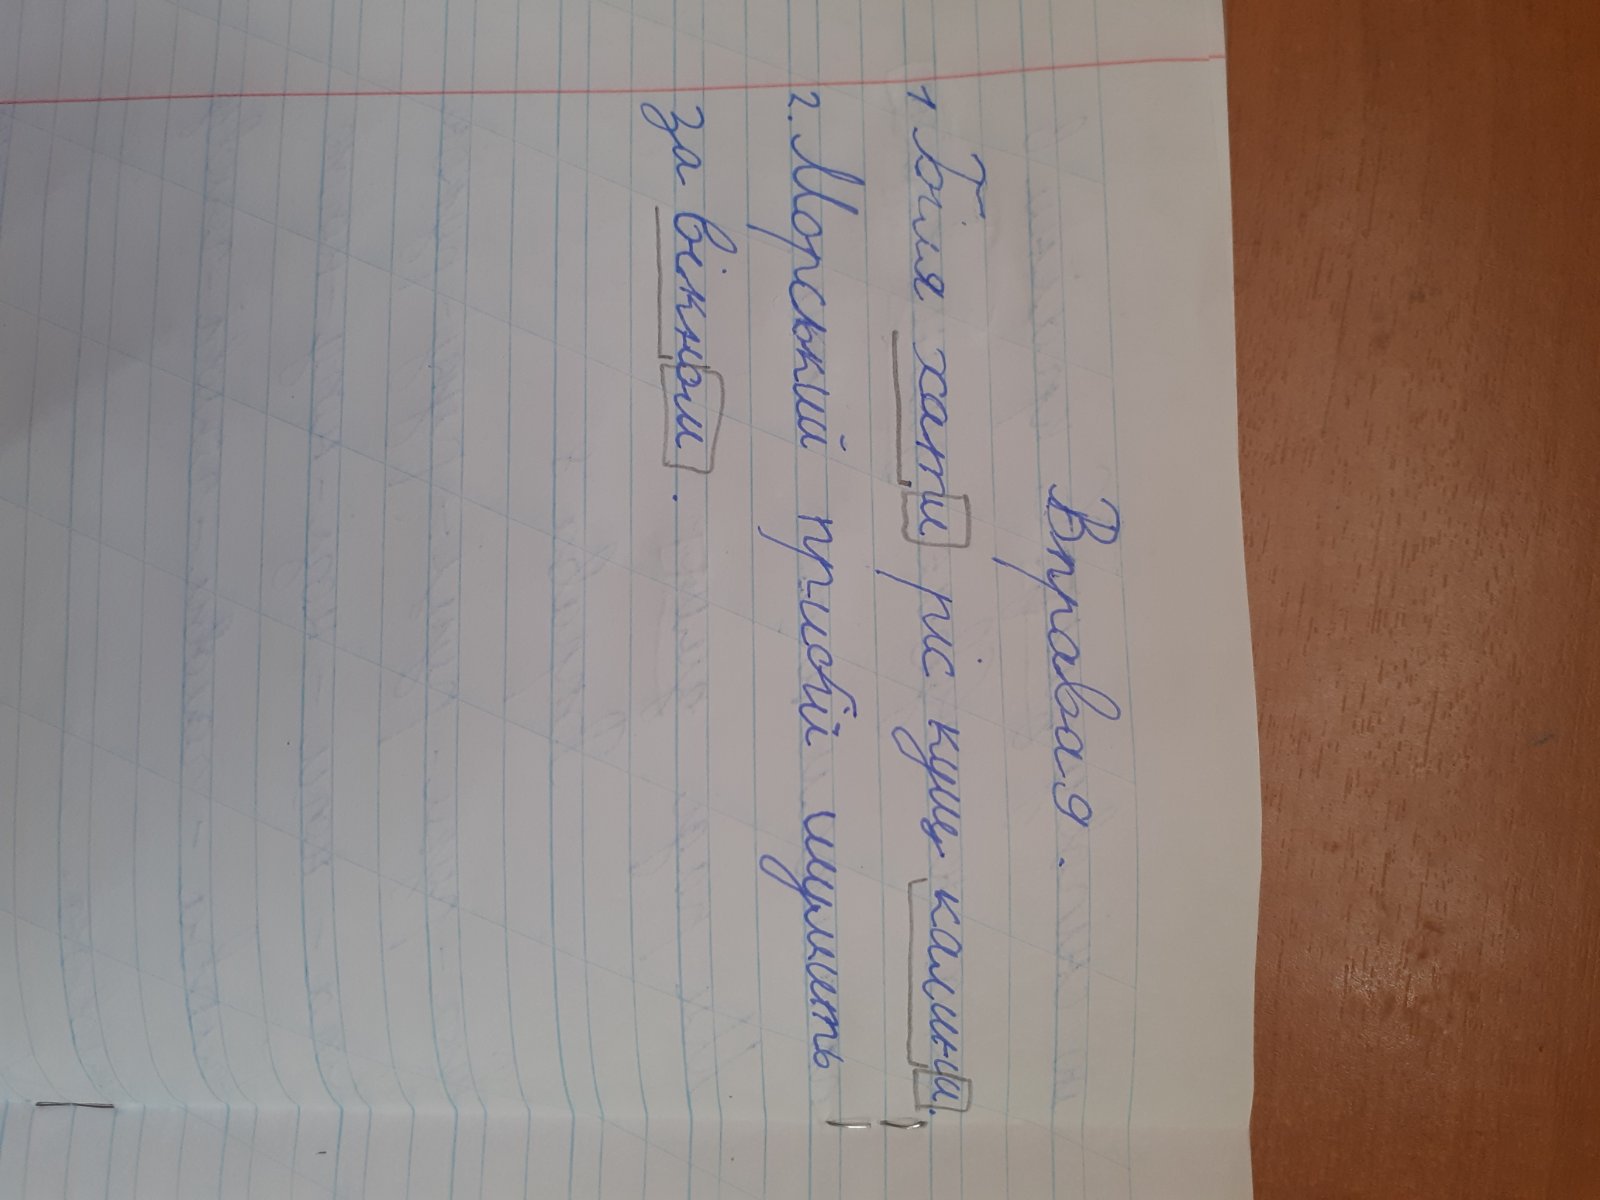 Вправа 9.
1 Біля хати ріс кущ калини.
2. Морський прибій шумить
за вікном.